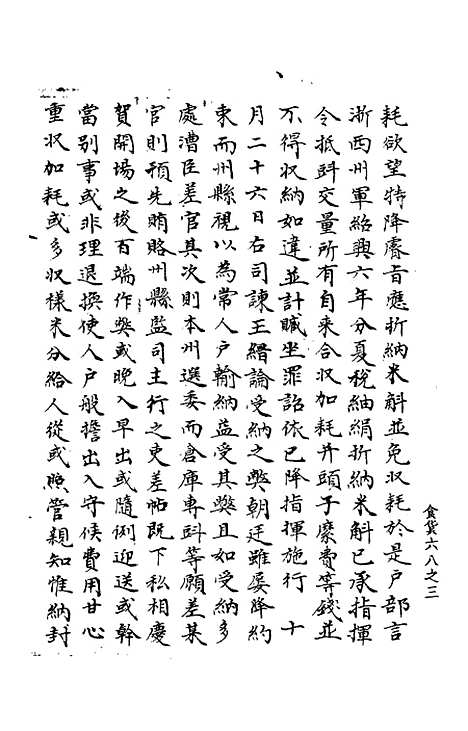 耗欲望特降睿旨應折納米斛並免収耗於是戶部言
浙西州軍紹興六年分夏稅紬絹折納米斛已承指揮
令抵斛交量所有自來合収加耗并頭子縻費等錢並
不得収納如違並計贓坐罪詔依已降指揮施行 十
月二十六日右司諫王縉論受納之弊朝廷雖屢降約
束而州縣視以為常人戶輸納益受其弊且如受納多
處漕臣差官其次則本州選委而倉庫專㪷等願差某
官則預先賄賂州縣監司主行之吏差帖既下私相慶
賀開場之後百端作弊或晚入早出或隨例迎送或幹
當別事或非理退換使人戶般擔出入守候費用甘心
重収加耗或多収樣米分給人從或照管親知惟納封
食貨六八之三